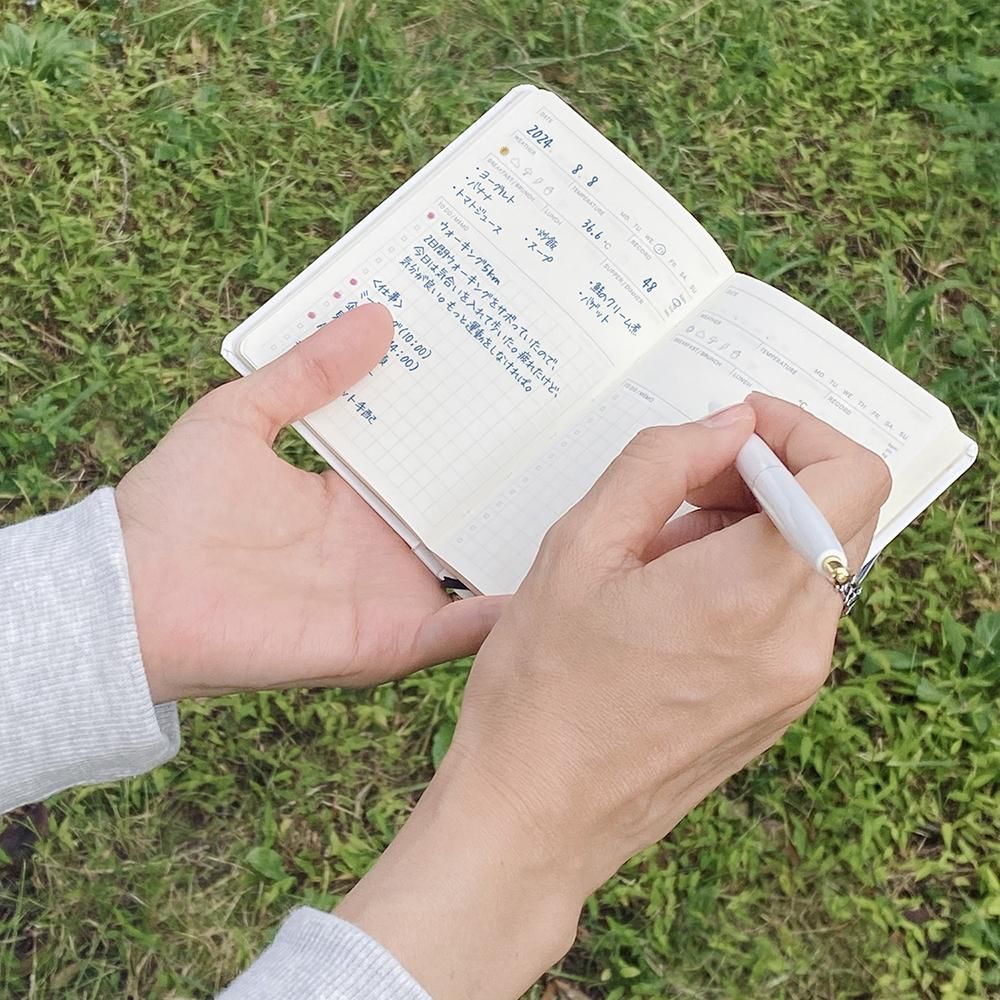 DATE
2024 8 8
WEATHER
TEMPERATURE
MO TU WE TH FR SA SU
36.6 °C
RECORD
48
BREAKFAST/BRUNCH
・ヨーグルト
・バナナ
・トマトジュース
LUNCH
・炒飯
・スープ
SUPPER/DINNER
・鮭のクリーム煮
・バゲット
TO DO/MEMO
ウォーキング5km
2日間ウォーキングをサボっていたので、
今日は気合いを入れて歩いた。疲れたけど、
気分が良い。もっと運動をしなければ。
<仕事>
グ(10:00)
4:00)
ット手配
DATE
WEATHER
TEMPERATURE
MO TU WE TH FR SA SU
°C
RECORD
BREAKFAST/BRUNCH
LUNCH
TO DO/MEMO